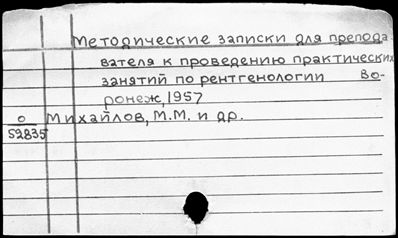 Методические записки для препода-
вателя к проведению практических
занятий по рентгенологии Во-
ронеж, 1957
о Михайлов, М.М. и др.
52835